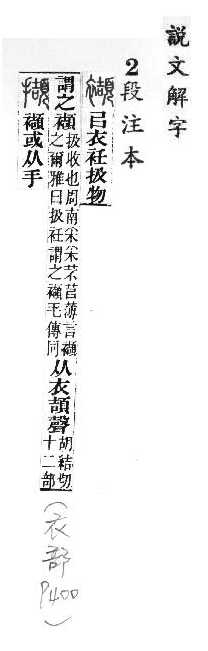 說文解字
2段注本
襭㠯衣衽扱物
謂之襭扱收也周南采采芣苢薄言襭之爾雅曰扱衽謂之襭毛傳同从衣頡聲胡結切十二部
擷襭或从手
(衣部P400)